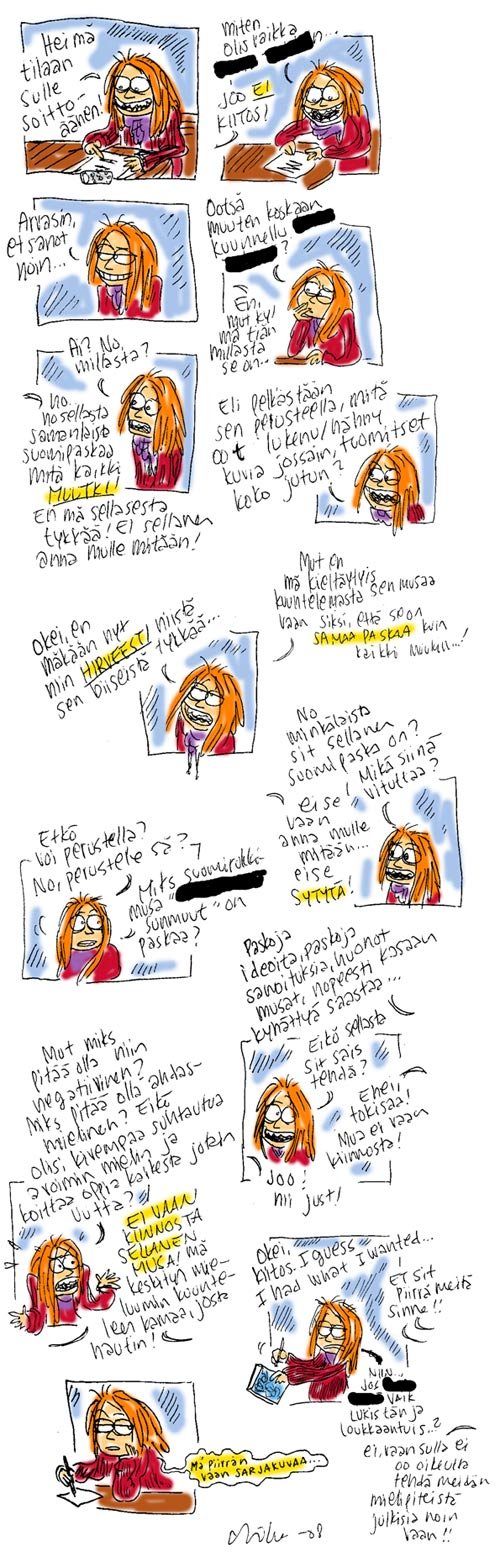 Hei mä
tilaan
sulle
soitto-
äänen!
miten
olis vaikka
JOO EI
KIITOS!
Arvasin,
et sanot
noin...
Ootsä
muuten koskaan
kuunnellu
?
En,
mut kyl
mä tiän
millasta
se on..
Ai? No,
millasta?
no..
no sellasta
samanlaista
suomipaskaa
mitä kaikki
MUUTKI!
En mä sellasesta
tykkää! Ei sellanen
anna mulle mitään!
Eli pelkästään
sen perusteella, mitä
oot lukenu/nähny
kuvia jossain, tuomitset
koko jutun?
Okei, en
mäkään nyt
niin HIRVEESTI niistä
sen biiseistä tykkää...
Mut en
mä kieltäytyis
kuuntelemasta sen musaa
vaan siksi, että se on
SAMAA PASKAA kuin
kaikki muukin...!
No
minkälaista
sit sellanen
suomipaska on?
Mikä siinä
vituttaa?
ei se
vaan
anna mulle
mitään...
ei se
SYTYTÄ!
Etkö
voi perustella?
No, perustele sä?
Miks suomirokki-
musa
sunmuut on
paskaa?
Paskoja
ideoita, paskoja
sanoituksia, huonot
musat, nopeesti kasaan
kyhättyä saastaa...
Eikö sellasta
sit sais
tehdä?
Eheii
tokisaa!
Mua ei vaan
kiinnosta!
JOO!
nii just!
Mut miks
pitää olla niin
negatiivinen?
Miks pitää olla ahdas-
mielinen? Eikö
olisi kivempaa suhtautua
avoimin mielin ja
koittaa oppia kaikesta jotain
uutta?
EI VAAN
KIINNOSTA
SELLANEN
MUSA! mä
keskityn mie-
luummin kuunte-
leen kamaa, josta
nautin!
Okei,
kiitos. I guess
I had what I wanted...
ET sit
piirrä meitä
sinne!!
NIIN...
JOS
VAIK
LUKIS tän ja
loukkaantuis..?
ei, vaan sulla ei
oo oikeutta
tehdä meidän
mielipiteistä
julkisia noin
vaan!!
Mä piirrän
vaan SARJAKUVAA...